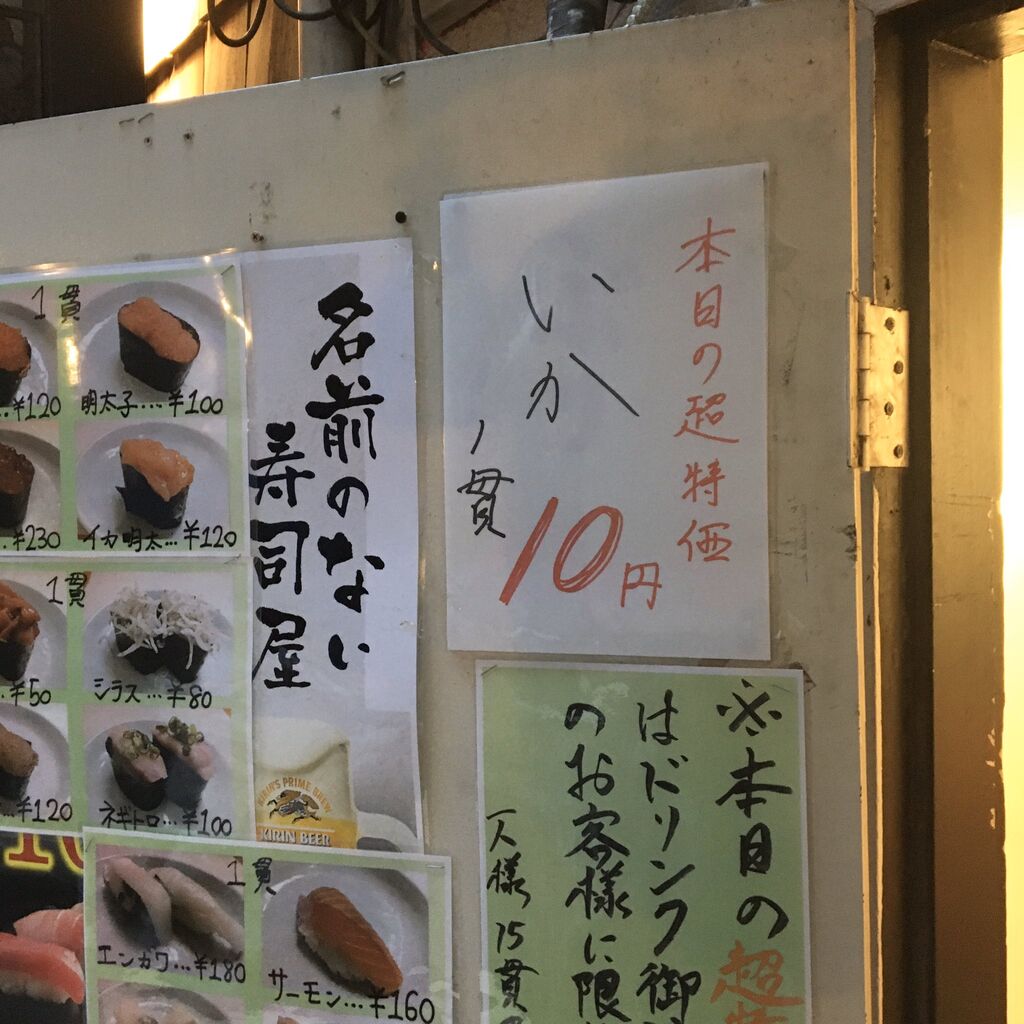 本日の超特価
いか
1貫
10円
名前のない
寿司屋
1貫
¥120
明太子…¥100
¥230
イカ明太…¥120
1貫
¥50
シラス…¥80
¥120
ネギトロ…¥100
KIRIN'S PRIME BREW
KIRIN BEER
1貫
エンガワ…¥180
サーモン…¥160
※本日の超特
はドリンク御
のお客様に限
一人様15貫